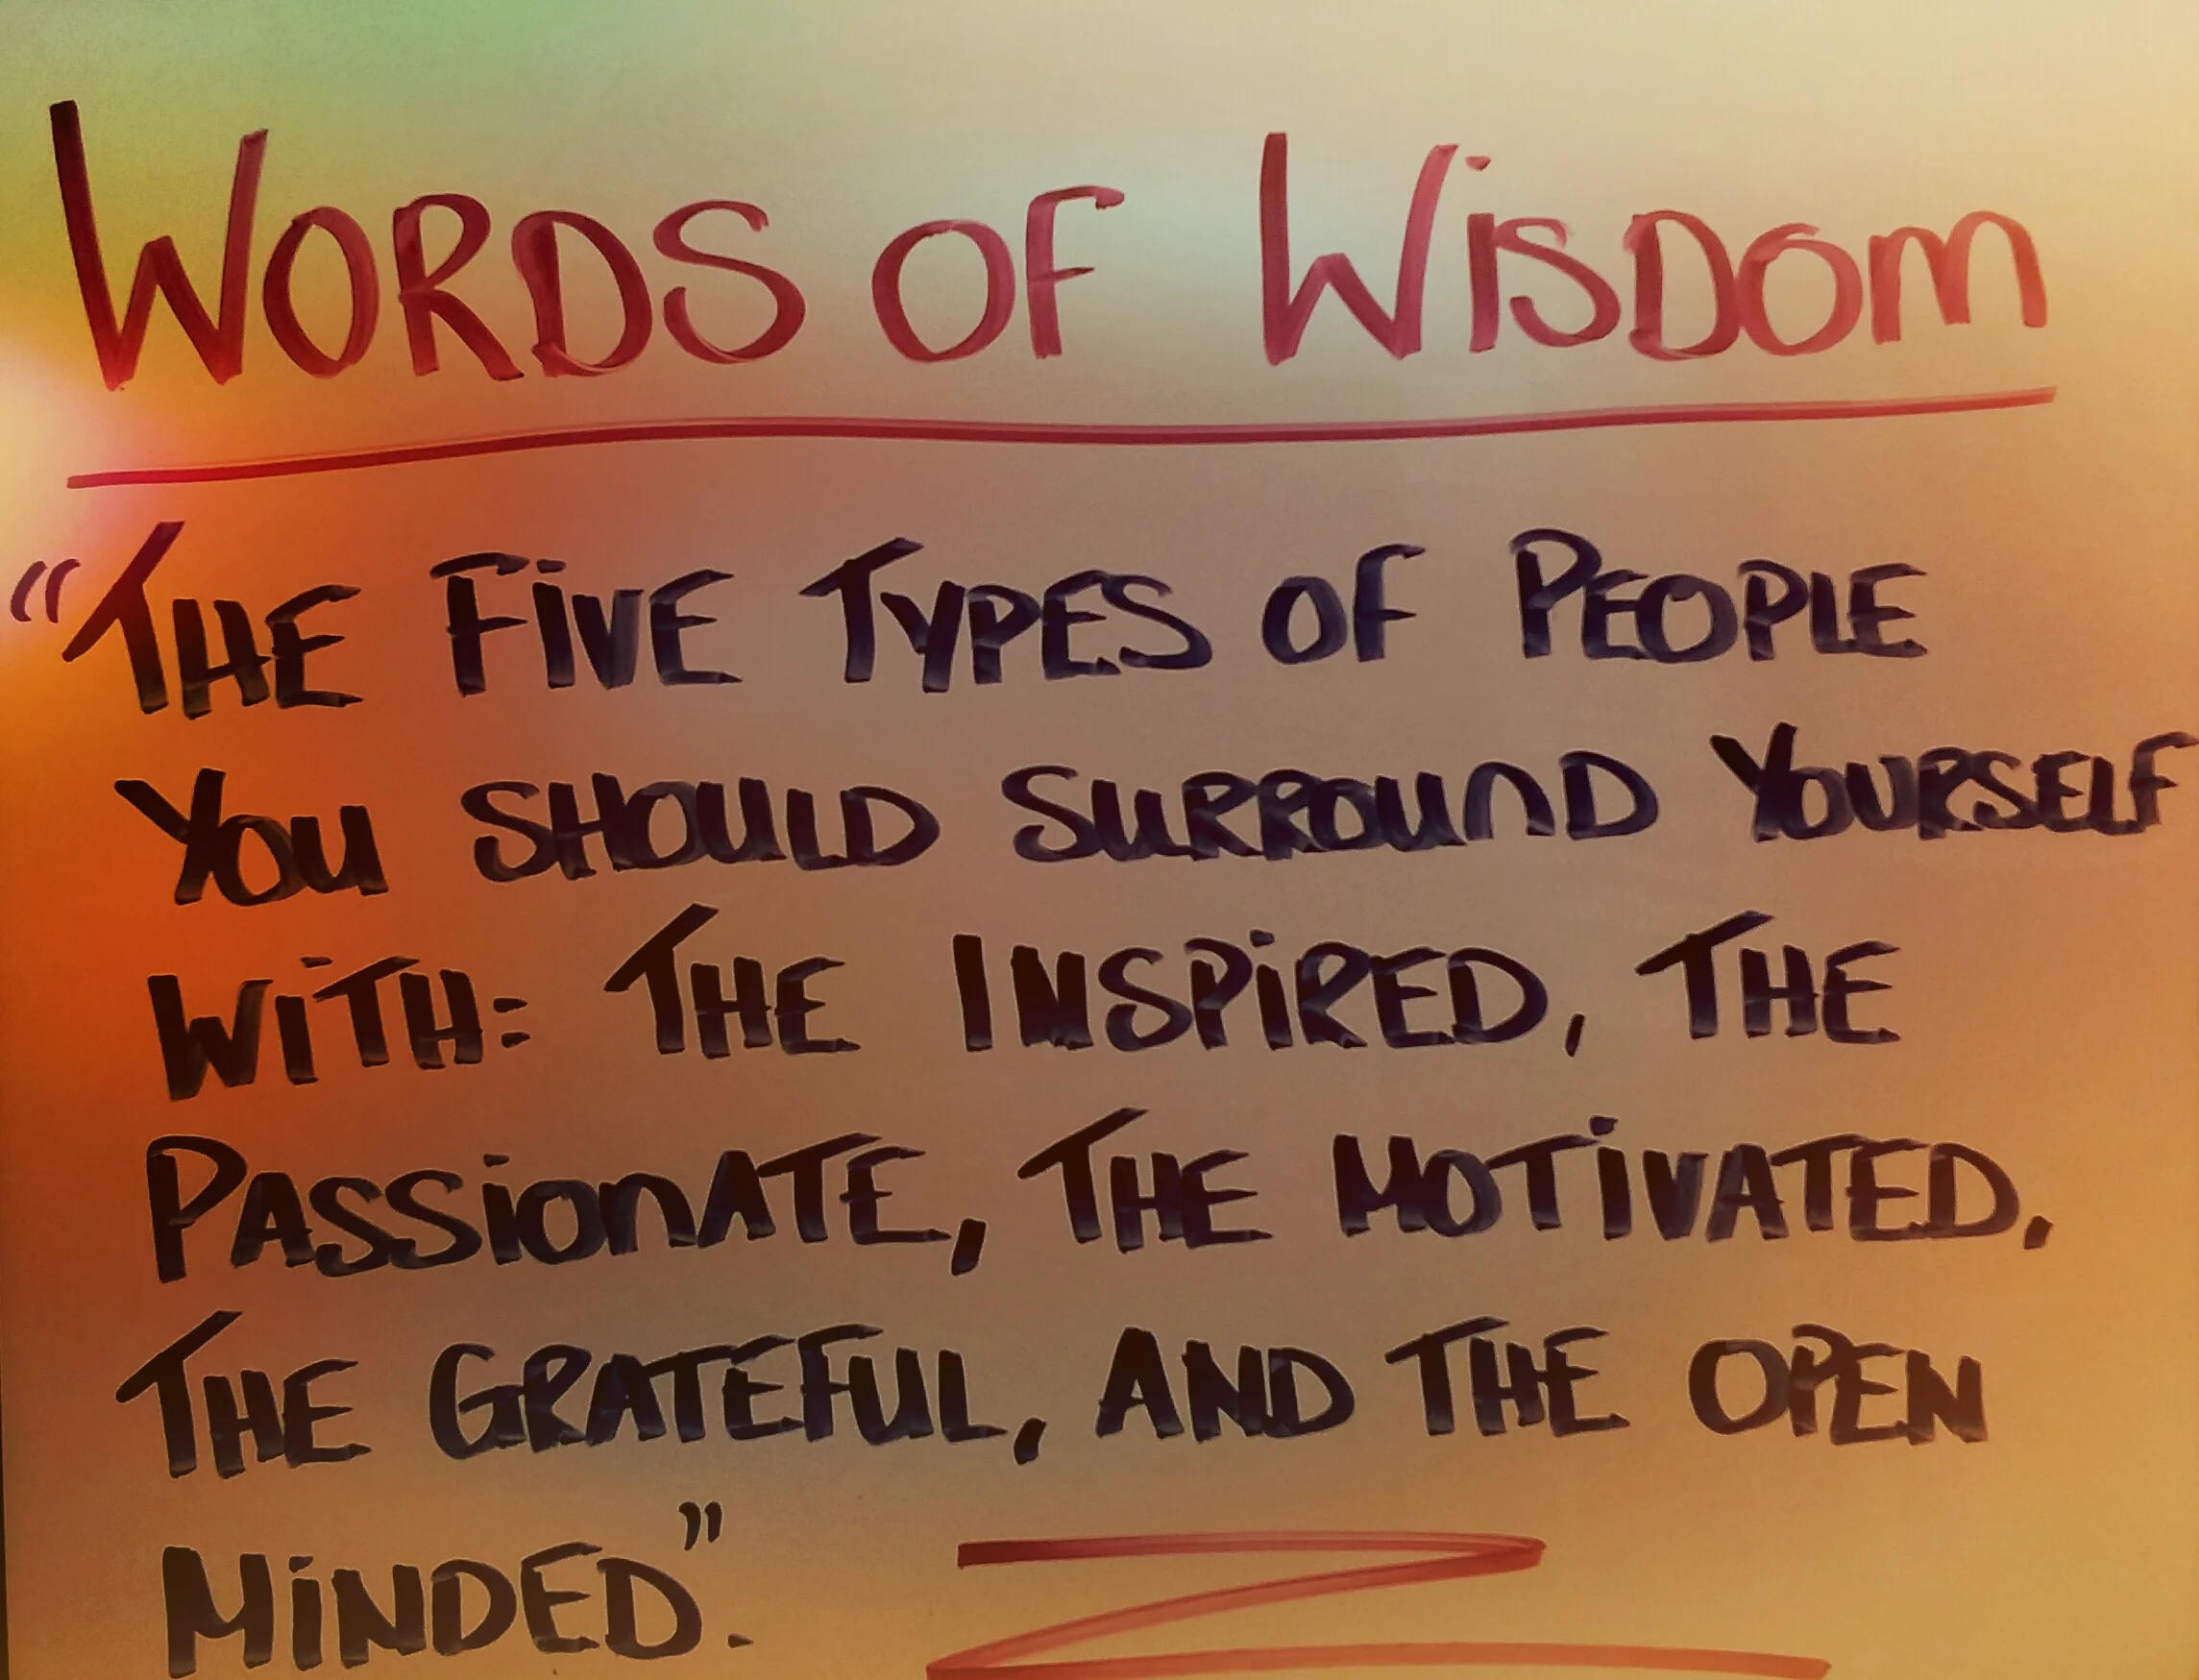 WORDS OF WISDOM
“THE FIVE TYPES OF PEOPLE
YOU SHOULD SURROUND YOURSELF
WITH: THE INSPIRED, THE
PASSIONATE, THE MOTIVATED,
THE GRATEFUL, AND THE OPEN
MINDED”.